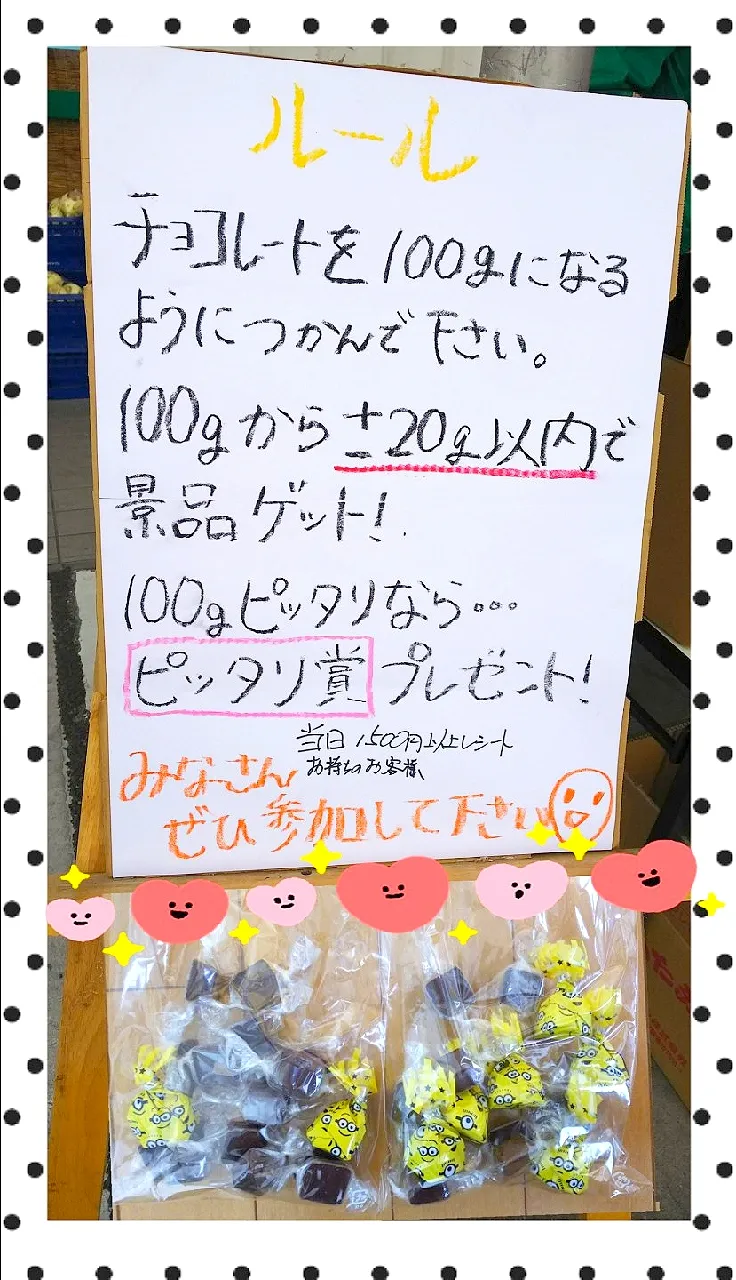 ルール
チョコレートを100gになる
ようにつかんで下さい。
100gから±20g以内で
景品ゲット!
100gピッタリなら…
ピッタリ賞プレゼント!
当日1,500円以上レシート
お持ちのお客様
みなさん
ぜひ参加して下さい